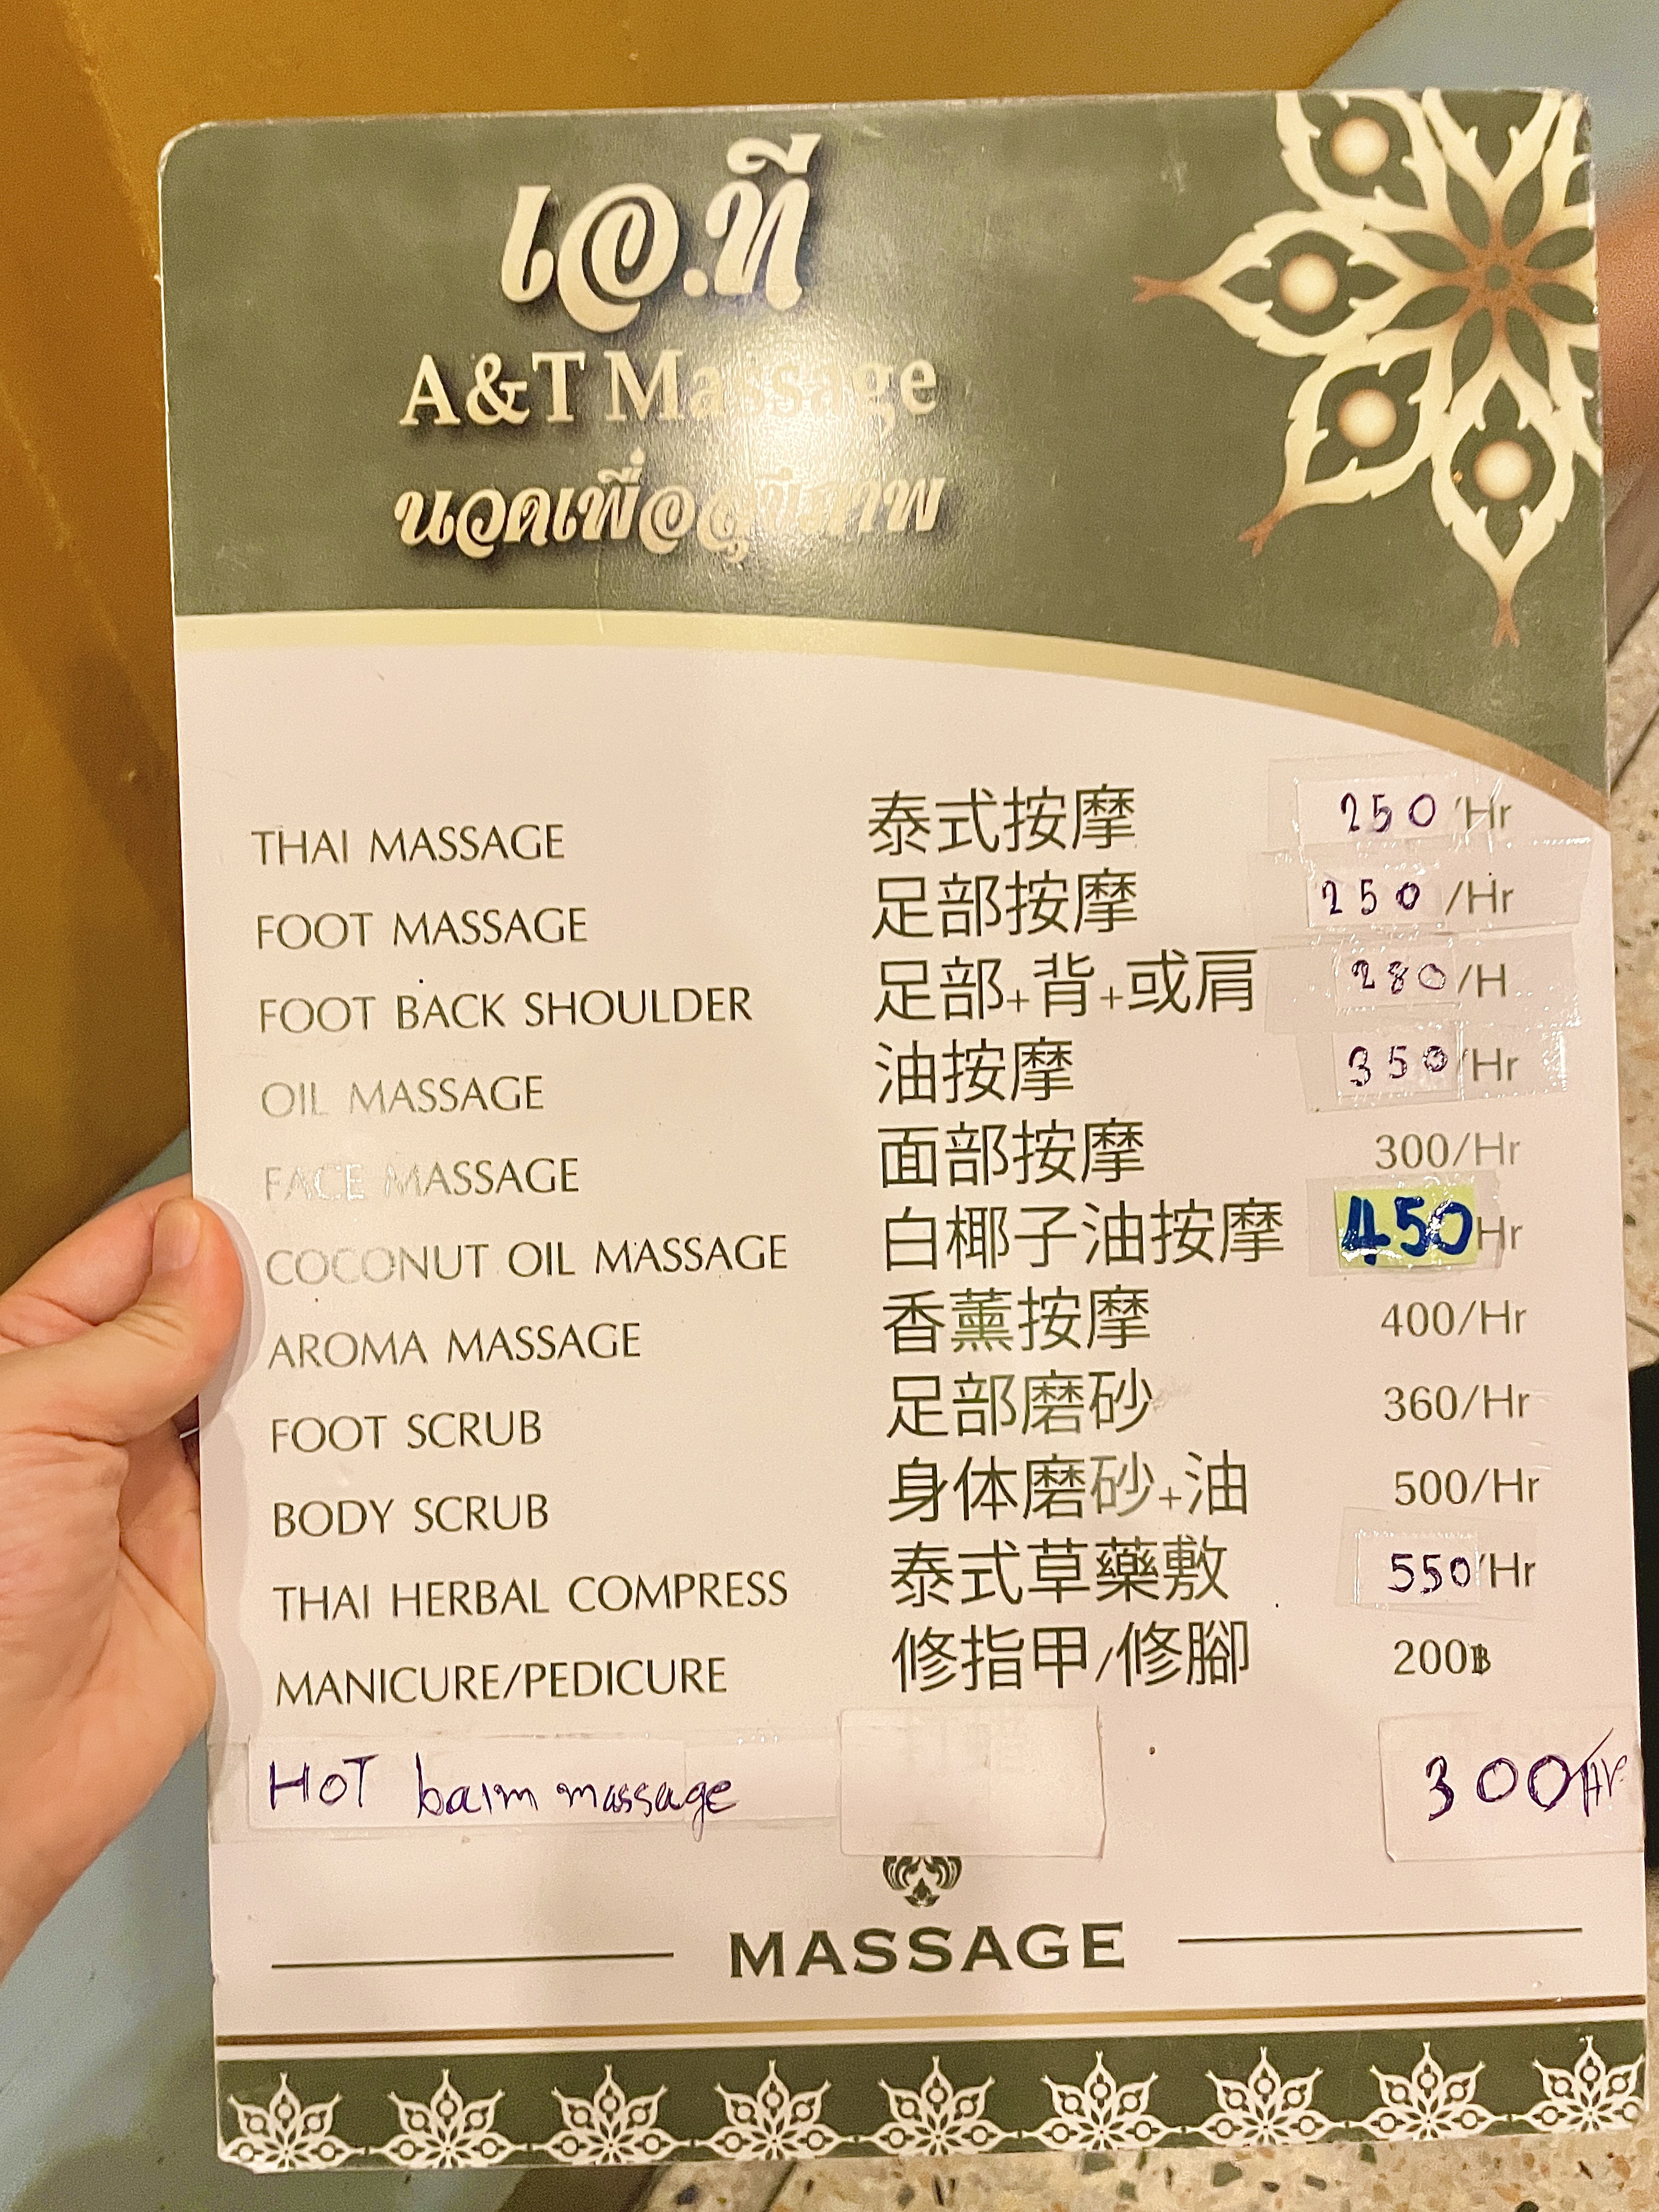 เอ.ที
A&T Massage
นวดเพื่อสุขภาพ
THAI MASSAGE 泰式按摩 250/Hr
FOOT MASSAGE 足部按摩 250/Hr
FOOT BACK SHOULDER 足部+背+或肩 280/H
OIL MASSAGE 油按摩 350/Hr
FACE MASSAGE 面部按摩 300/Hr
COCONUT OIL MASSAGE 白椰子油按摩 450Hr
AROMA MASSAGE 香薰按摩 400/Hr
FOOT SCRUB 足部磨砂 360/Hr
BODY SCRUB 身体磨砂+油 500/Hr
THAI HERBAL COMPRESS 泰式草藥敷 550/Hr
MANICURE/PEDICURE 修指甲/修腳 200฿
HOT balm massage 300/Hr
MASSAGE